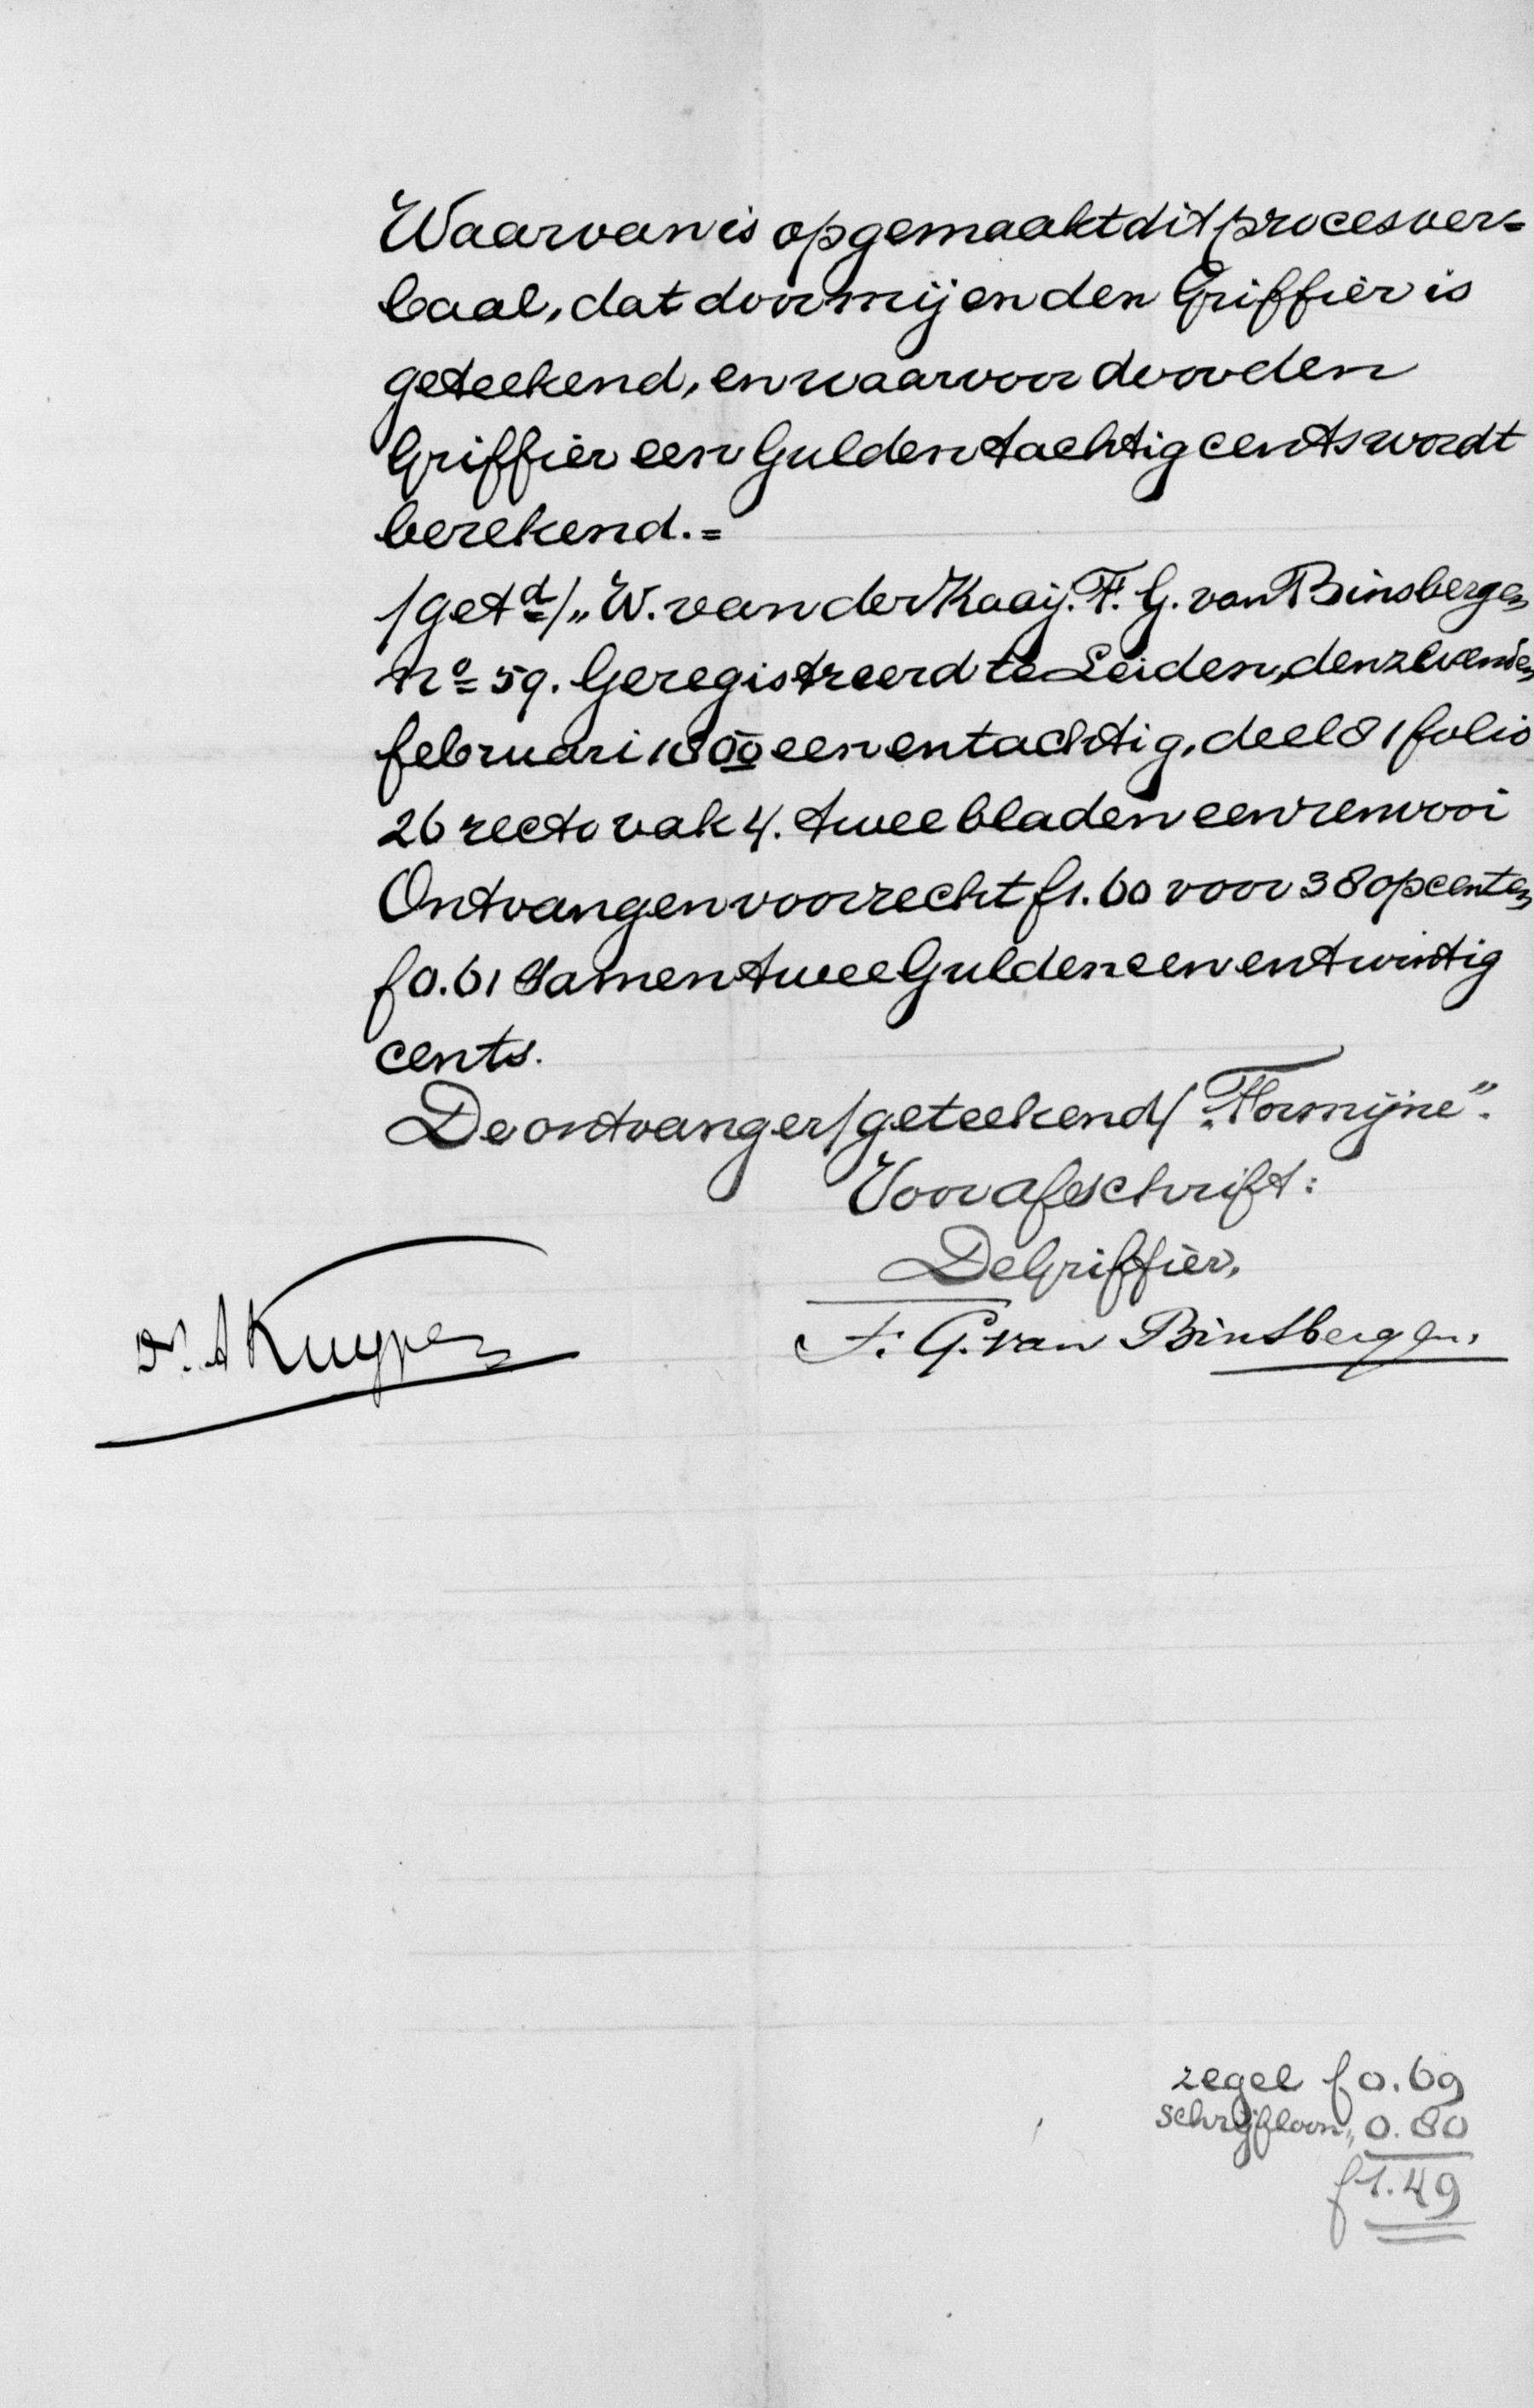 Waarvan is opgemaakt dit procesver=
baal, dat door mij en den Griffier is
geteekend, en waarvoor door den
Griffier een Gulden tachtig cents wordt
berekend.=
/getd/ „W. van der Kaaij. F. G. van Binsbergen
No 59. Geregistreerd te Leiden, den zevenden
februari 1800 een en tachtig, deel 81 folio
26 recto vak 4. twee bladen een renvooi
Ontvangen voor recht f1.60 voor 38 opcenten
f0.61 Samen twee Gulden een en twintig
cents.
De ontvanger /geteekend/ „Formijne”.
Voor afschrift:
De Griffier,
F. G. van Binsbergen.
Dr. A Kuyper
zegel f0.69
schrijfloon „ 0.80
f1.49